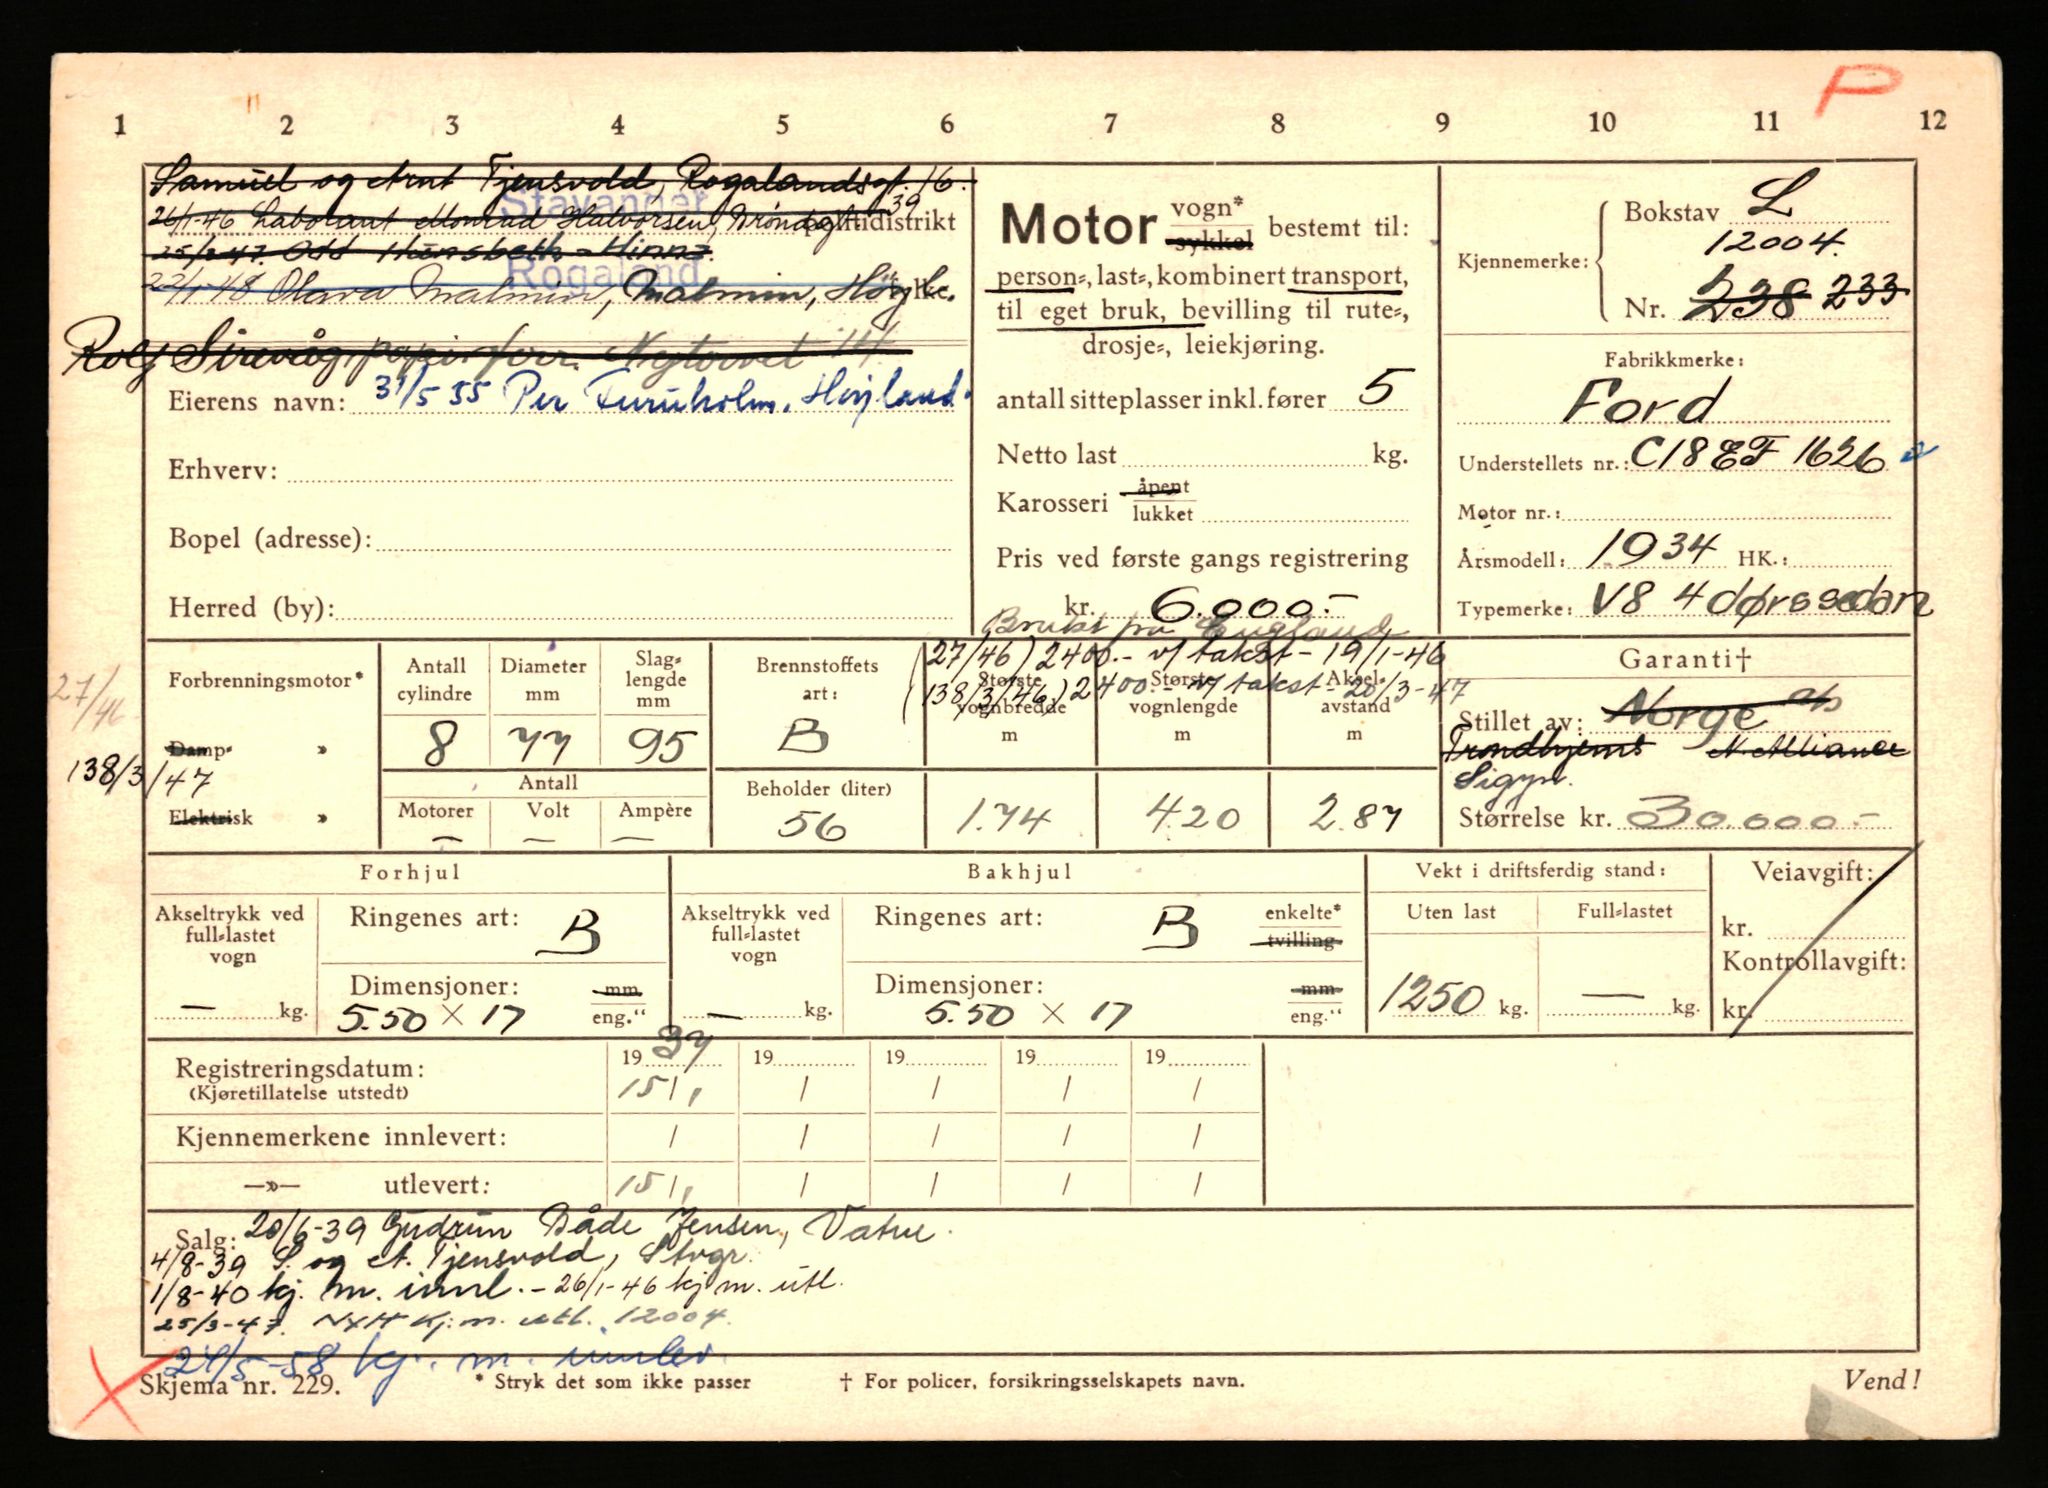 P
1 2 3 4 5 6 7 8 9 10 11 12
Samuel og Arnt Tjensvold, Rogalandsgt. 16.
Stavanger
26/1-46 Laborant Monrad Halvorsen, Brøndgt 39 politidistrikt
25/3-47. Odd
Rogaland
22/1-48 Olava Malmin, Malmin, Høyl. fylke.
Rolf Sirevåg papirforr. Nytorvet 14
Eierens navn: 31/5 55 Per Furuholm. Høyland.
Erhverv:
Bopel (adresse):
Herred (by):
Motor vogn* sykkel bestemt til:
person-, last-, kombinert transport,
til eget bruk, bevilling til rute-,
drosje-, leiekjøring.
antall sitteplasser inkl. fører 5
Netto last kg.
Karosseri åpent lukket
Pris ved første gangs registrering
kr. 6.000.-
Brukt fra England
Kjennemerke: Bokstav L
12004.
Nr. 238 233
Fabrikkmerke:
Ford
Understellets nr.: C18EF 1626
Motor nr.:
Årsmodell: 1934 HK.:
Typemerke: V8 4 dørs sedan
27/46
138/3/47
Forbrenningsmotor*
Damp- »
Elektrisk »
Antall cylindre 8
Diameter mm 77
Slaglengde mm 95
Antall
Motorer — Volt — Ampère —
Brennstoffets art: B
Beholder (liter) 56
(27/46) 2400.- v/ takst - 19/1-46
(138/3/46) 2400.- v/ takst - 20/3-47
Største vognbredde m 1.74
Største vognlengde m 4.20
Aksel-avstand m 2.87
Garanti†
Stillet av: Norge
Trondhjems N. Alliance
Sigyn.
Størrelse kr. 30.000.-
Forhjul
Akseltrykk ved full-lastet vogn — kg.
Ringenes art: B
Dimensjoner: mm
5.50 × 17 eng."
Bakhjul
Akseltrykk ved full-lastet vogn — kg.
Ringenes art: B enkelte* tvilling
Dimensjoner: mm
5.50 × 17 eng."
Vekt i driftsferdig stand:
Uten last 1250 kg.
Full-lastet — kg.
Veiavgift:
kr.
Kontrollavgift:
kr.
Registreringsdatum: 1937 19 19 19 19
(Kjøretillatelse utstedt) 15/1 / / / /
Kjennemerkene innlevert: / / / / /
—»— utlevert: 15/1 / / / /
Salg: 20/6-39 Gudrun Både Jensen, Vatne.
4/8-39 S. og A. Tjensvold, Stvgr.
1/8-40 kj. m. innl. - 26/1-46 kj m. utl.
25/3-47. Nytt kj. m. utl. 12004.
24/5-58 kj. m. innlev.
Skjema nr. 229. * Stryk det som ikke passer † For policer, forsikringsselskapets navn. Vend!